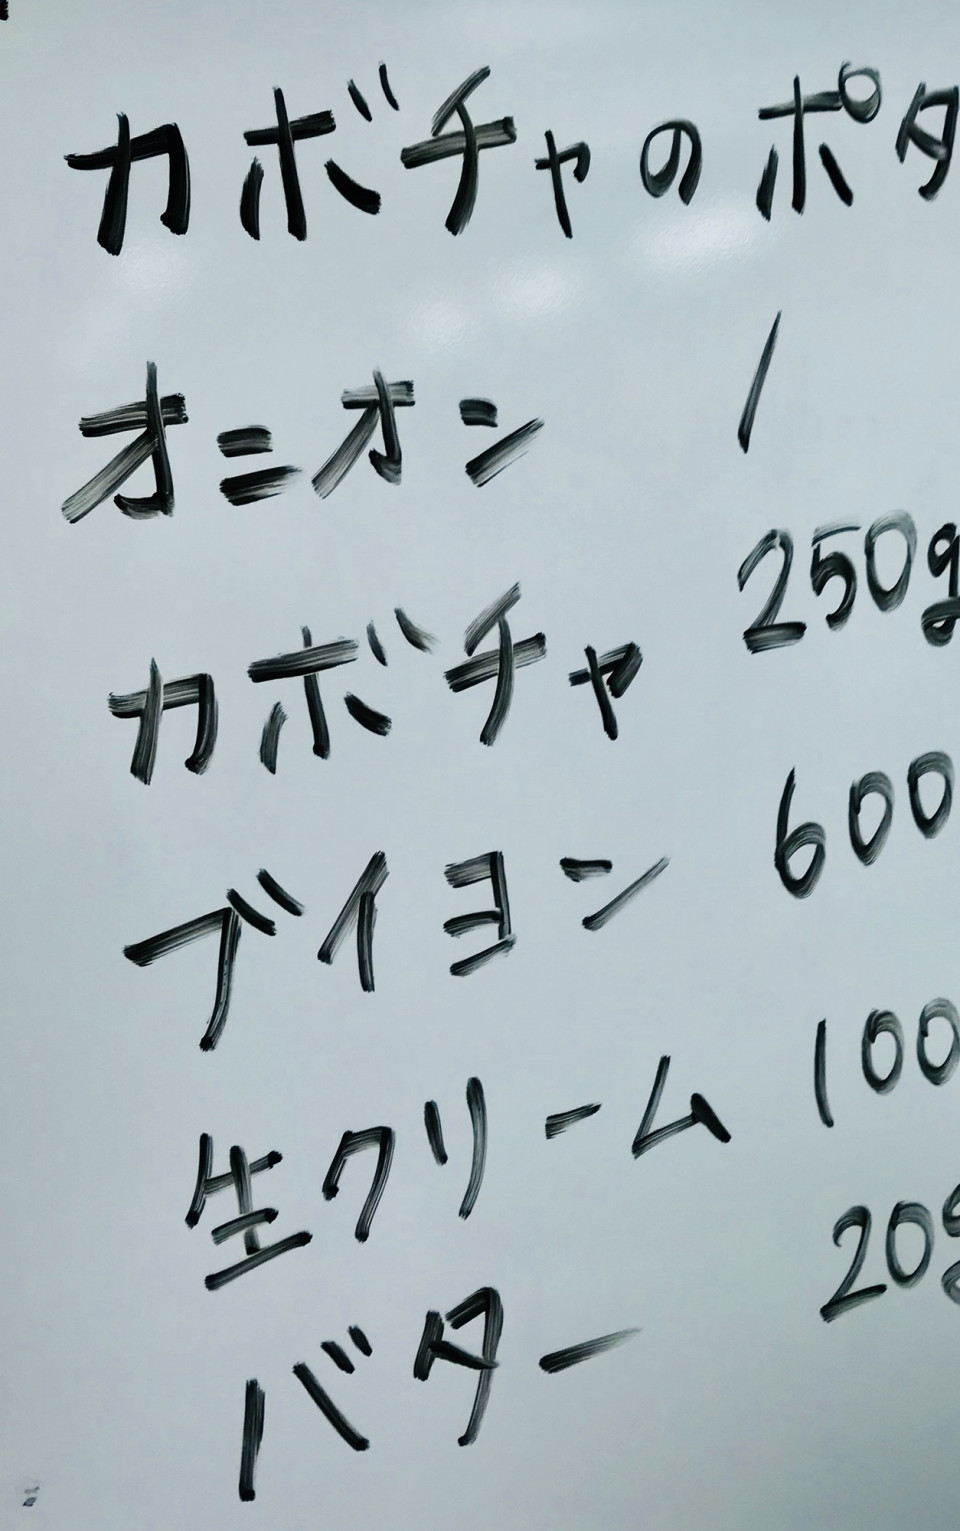 カボチャのポタ
オニオン 1
カボチャ 250g
ブイヨン 600
生クリーム 100
バター 20g